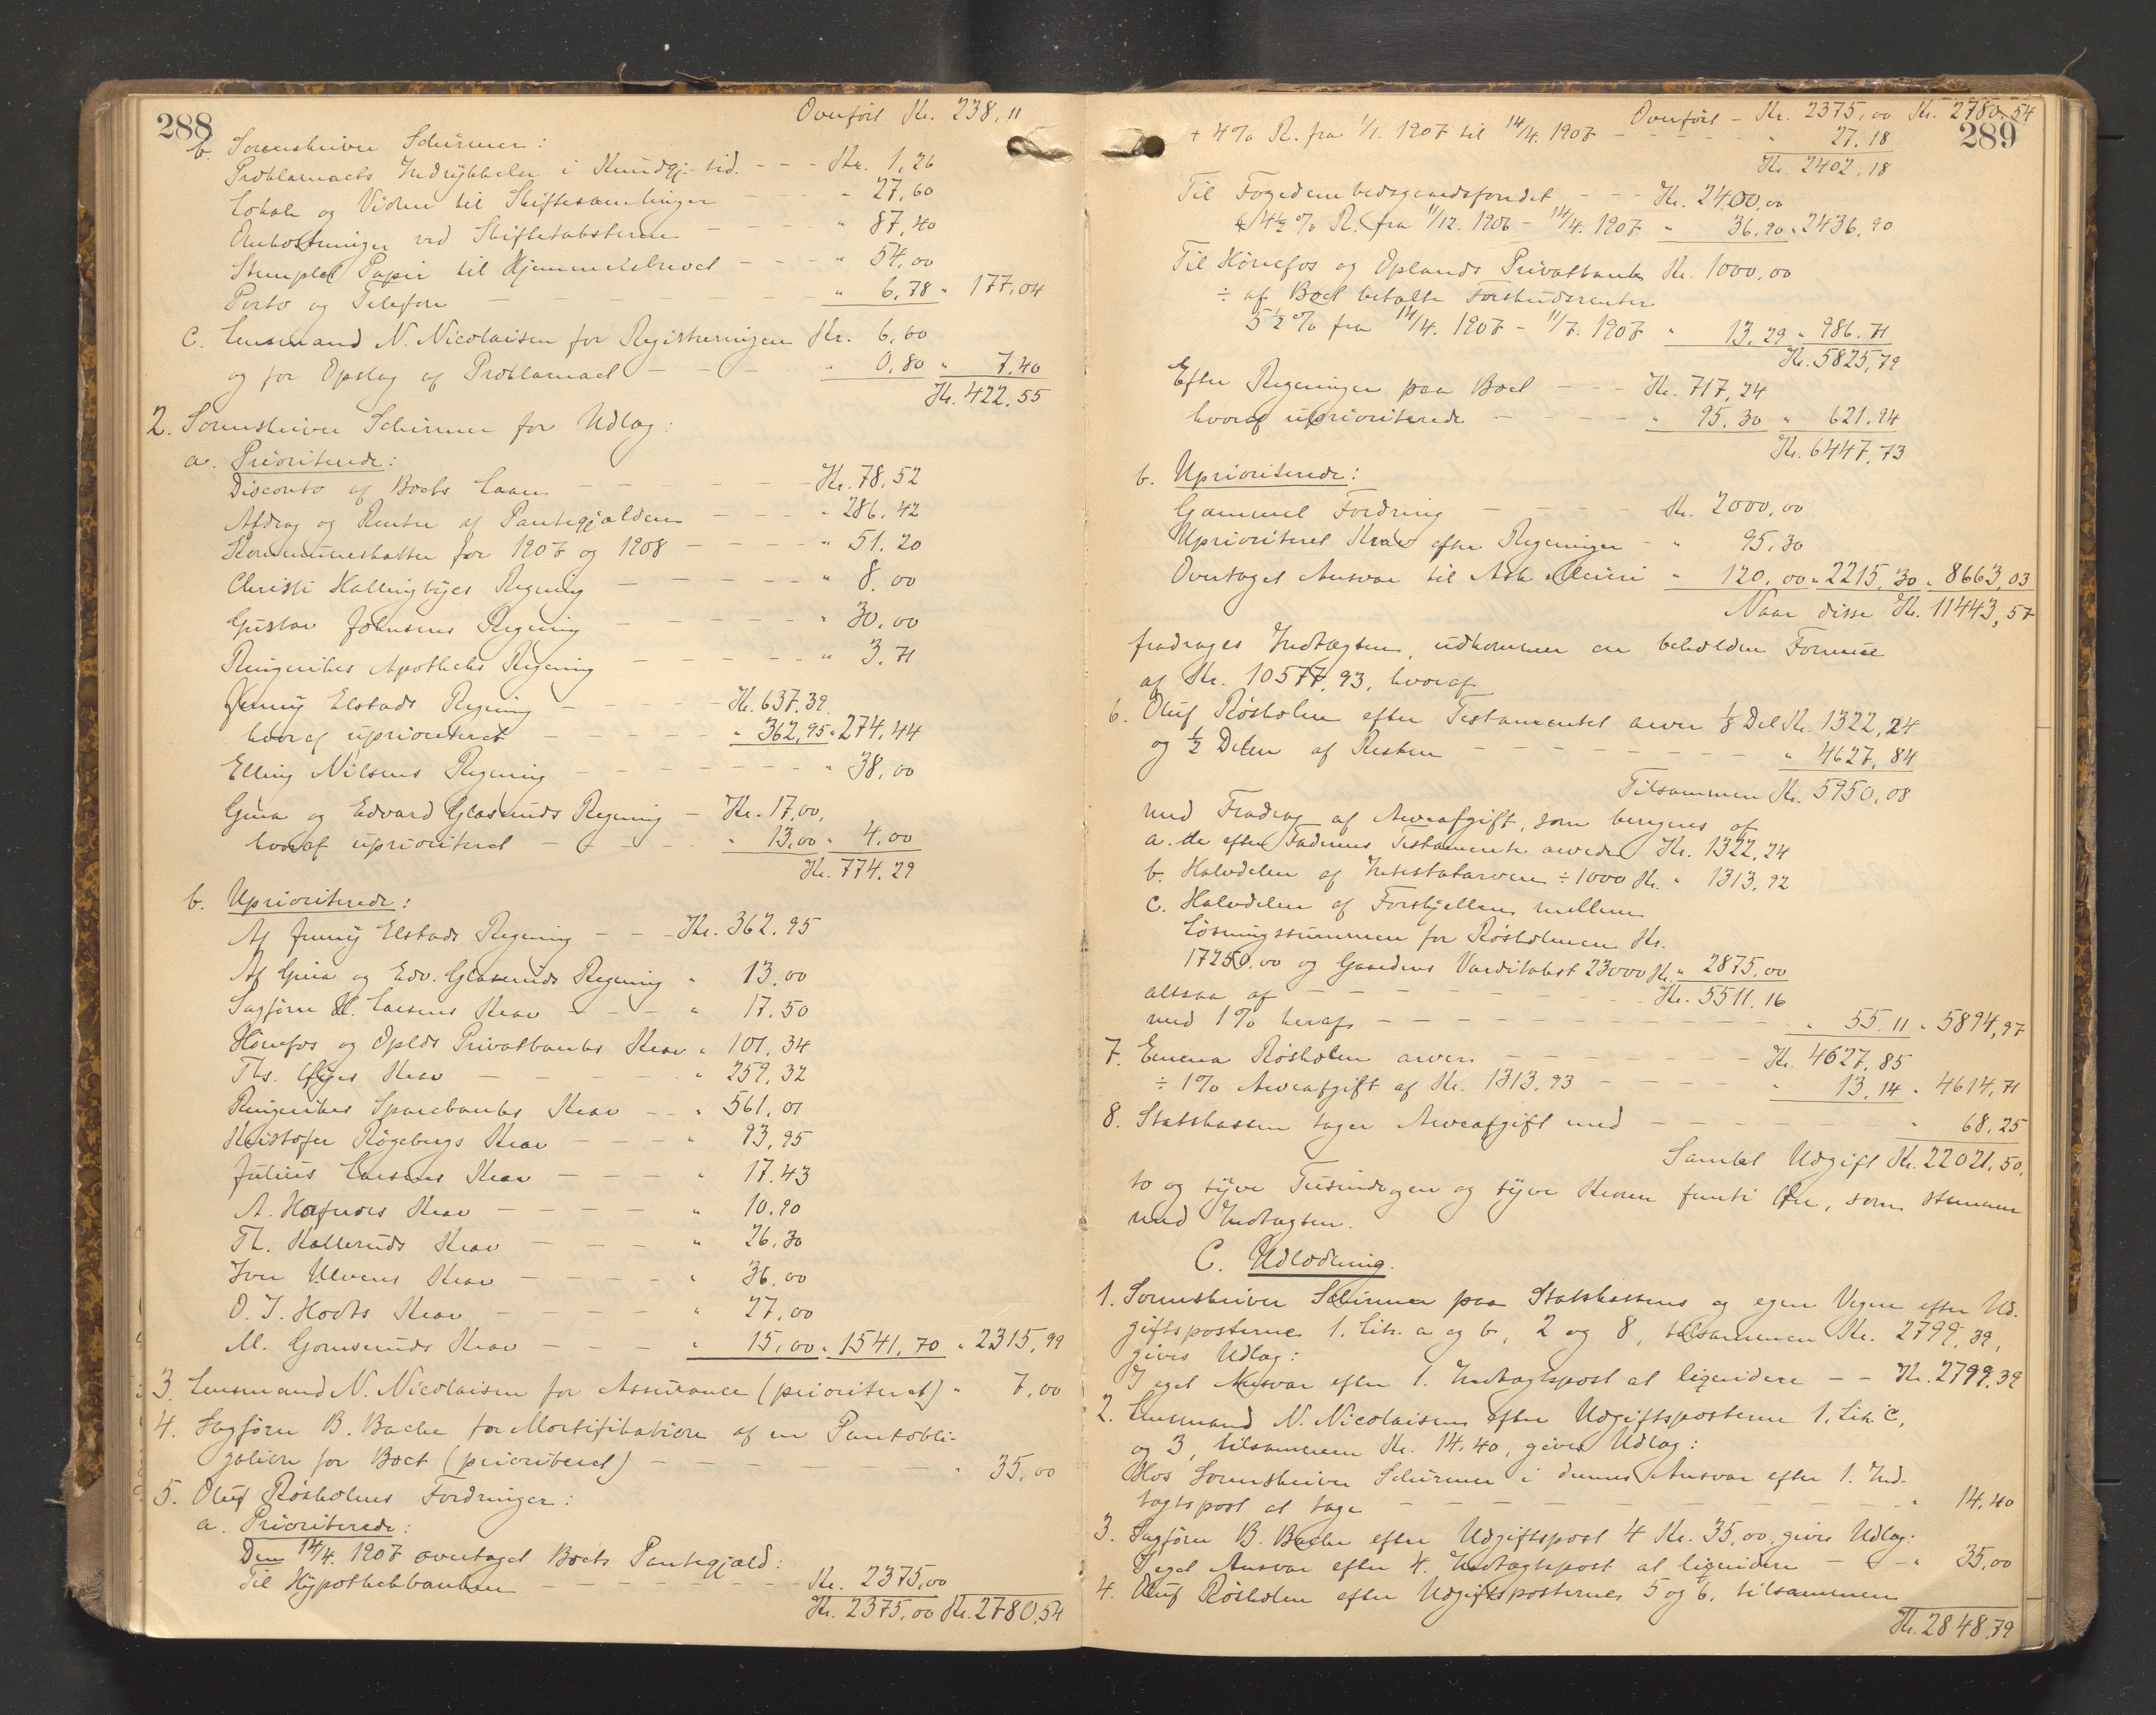 288
Overført Kr. 238,11
b. Sorenskriver Schirmer:
Proklamaets Indrykkelse i Kundgj. tid. - - - Kr. 1,26
Lokale og Vidner til Skiftesamlinger - - - " 27,60
Omkostninger ved Skiftetaksterne - - - " 87,40
Stemplet Papir til Hjemmelsbrevet - - - " 54,00
Porto og Telefon - - - " 6,78 " 177,04
c. Lensmand N. Nicolaisen for Registreringen Kr. 6,60
og for Opslag af Proklamaet - - - " 0,80 " 7,40
Kr. 422,55
2. Sorenskriver Schirmer for Udlæg:
a. Prioriterede:
Disconto af Boets Laan - - - Kr. 78,52
Afdrag og Renter af Pantegjælden - - - " 286,42
Kommuneskatter for 1907 og 1908 - - - " 51,20
Christi Hallingbyes Regning - - - " 8,00
Gustav Johnsens Regning - - - " 30,00
Ringerikes Apotheks Regning - - - " 3,71
Jenny Elstads Regning - - - Kr. 637,39
hvoraf uprioriteret - - - " 362,95 " 274,44
Elling Nilsens Regning - - - " 38,00
Gina og Edvard Glaseruds Regning - Kr. 17,00,
hvoraf uprioriteret - - - " 13,00 " 4,00
Kr. 774,29
b. Uprioriterede:
Af Jenny Elstads Regning - - - Kr. 362,95
Af Gina og Edv. Glaseruds Regning " 13,00
Sagfører H. Larsens Krav - - - " 17,50
Hønefos og Oplds Privatbanks Krav " 101,34
Ths. Krav - - - " 259,32
Ringerikes Sparebanks Krav - - " 561,01
Kristofer Røgebergs Krav - - - " 93,95
Julius Larsens Krav - - - " 17,43
A. Hafnors Krav - - - " 10,90
Th. Kolleruds Krav - - - " 26,30
Iver Ulvens Krav - - - " 36,00
O. J. Hoels Krav - - - " 27,00
M. Gomseruds Krav - - - " 15,00 " 1541,70 " 2315,99
3. Lensmand N. Nicolaisen for Assurance (prioriteret) " 7,00
4. Sagfører B. Bache for Mortifikation af en Pantobli-
gation for Boet (prioriteret) - - - " 35,00
5. Oluf Røsholms Fordringer:
a. Prioriterede:
Den 14/4. 1907 overtaget Boets Pantegjæld:
Til Hypothekbanken - - - Kr. 2375,00
Kr. 2375,00 Kr. 2780,54
289
Overført - Kr. 2375,00 Kr. 2780,54
+ 4% R. fra 1/1. 1907 til 14/4. 1907 - - - " 27,18
Kr. 2402,18
Til Fogedembedsgaardsfondet - - - Kr. 2400,00
+ 4½% R. fra 11/12. 1906 - 14/4. 1907 " 36,90 " 2436,90
Til Hønefos og Oplands Privatbank Kr. 1000,00
÷ af Boet betalte Forskudsrenter
5½% fra 14/4. 1907 - 11/7. 1907 " 13,29 " 986,71
Kr. 5825,79
Efter Regninger paa Boet - - - Kr. 717,24
hvoraf uprioriterede - - - " 95,30 " 621,94
Kr. 6447,73
b. Uprioriterede:
Gammel Fordring - - - Kr. 2000,00
Uprioriteret Krav efter Regninger - " 95,30
Overtaget Ansvar til Ask Meieri " 120,00 " 2215,30 " 8663,03
Naar disse Kr. 11443,57
fradrages Indtægten, udkommer en beholden Formue
af Kr. 10577,93, hvoraf
6. Oluf Røsholm efter Testamentet arver ⅛ Del Kr. 1322,24
og ½ Delen af Resten - - - " 4627,84
Tilsammen Kr. 5950,08
med Fradrag af Arveafgift, som beregnes af
a. de efter Faderens Testamente arvede Kr. 1322,24
b. Halvdelen af Intestatarven ÷ 1000 Kr. " 1313,92
c. Halvdelen af Forskjellen mellem
Løsningssummen for Røsholmen Kr.
17250,00 og Gaardens Værditakst 23000 Kr. " 2875,00
altsaa af - - - Kr. 5511,16
med 1% heraf - - - " 55,11 " 5894,97
7. Emma Røsholm arver - - - Kr. 4627,85
÷ 1% Arveafgift af Kr. 1313,93 - - - " 13,14 " 4614,71
8. Statskassen tager Arveafgift med - - - " 68,25
Samlet Udgift Kr. 22021,50,
to og tyve Tusind og en og tyve Kroner femti Øre, som stemmer
med Indtægten.
C. Udlodning.
1. Sorenskriver Schirmer paa Statskassens og egne Vegne efter Ud-
giftsposterne 1. Lit. a og b, 2 og 8, tilsammen Kr. 2799,39,
gives Udlæg:
I eget Ansvar efter 1. Indtægtspost at liqvidere - - Kr. 2799,39
2. Lensmand N. Nicolaisen efter Udgiftsposterne 1. Lit. c,
og 3, tilsammen Kr. 14,40, gives Udlæg:
Hos Sorenskriver Schirmer i dennes Ansvar efter 1. Ind-
tægtspost at tage - - - " 14,40
3. Sagfører B. Bache efter Udgiftspost 4 Kr. 35,00, gives Udlæg:
I eget Ansvar efter 4. Indtægtspost at liqvidere - - - " 35,00
4. Oluf Røsholm efter Udgiftsposterne 5 og 6, tilsammen
Kr. 2848,79